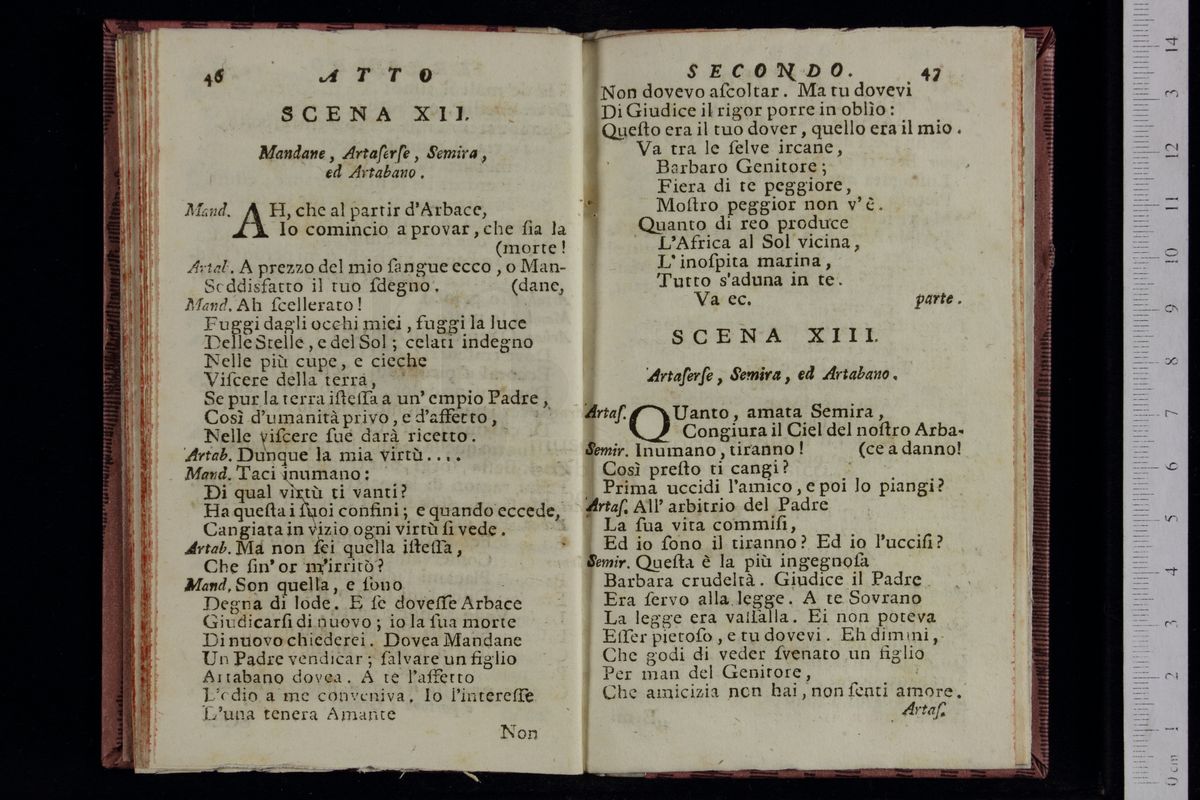 46 ATTO
SCENA XII.
Mandane, Artaſerſe, Semira,
ed Artabano.
Mand. AH, che al partir d'Arbace,
Io comincio a provar, che ſia la
(morte!
Artab. A prezzo del mio ſangue ecco, o Man-
Soddisfatto il tuo ſdegno. (dane,
Mand. Ah ſcellerato!
Fuggi dagli occhi miei, fuggi la luce
Delle Stelle, e del Sol; celati indegno
Nelle più cupe, e cieche
Viſcere della terra,
Se pur la terra iſteſſa a un' empio Padre,
Così d'umanità privo, e d'affetto,
Nelle viſcere ſue darà ricetto.
Artab. Dunque la mia virtù....
Mand. Taci inumano:
Di qual virtù ti vanti?
Ha queſta i ſuoi confini; e quando eccede,
Cangiata in vizio ogni virtù ſi vede.
Artab. Ma non ſei quella iſteſſa,
Che ſin' or m'irritò?
Mand. Son quella, e ſono
Degna di lode. E ſe doveſſe Arbace
Giudicarſi di nuovo; io la ſua morte
Di nuovo chiederei. Dovea Mandane
Un Padre vendicar; ſalvare un figlio
Artabano dovea. A te l'affetto
L'odio a me conveniva. Io l'intereſſe
L'una tenera Amante
Non
SECONDO. 47
Non dovevo aſcoltar. Ma tu dovevi
Di Giudice il rigor porre in oblìo:
Queſto era il tuo dover, quello era il mio.
Va tra le ſelve ircane,
Barbaro Genitore;
Fiera di te peggiore,
Moſtro peggior non v'è.
Quanto di reo produce
L'Africa al Sol vicina,
L'inoſpita marina,
Tutto s'aduna in te.
Va ec. parte.
SCENA XIII.
Artaſerſe, Semira, ed Artabano.
Artaſ. QUanto, amata Semira,
Congiura il Ciel del noſtro Arba-
Semir. Inumano, tiranno! (ce a danno!
Così preſto ti cangi?
Prima uccidi l'amico, e poi lo piangi?
Artaſ. All' arbitrio del Padre
La ſua vita commiſi,
Ed io ſono il tiranno? Ed io l'ucciſi?
Semir. Queſta è la più ingegnoſa
Barbara crudeltà. Giudice il Padre
Era ſervo alla legge. A te Sovrano
La legge era vaſſalla. Ei non poteva
Eſſer pietoſo, e tu dovevi. Eh dimmi,
Che godi di veder ſvenato un figlio
Per man del Genitore,
Che amicizia non hai, non ſenti amore.
Artaſ.
0 cm 1 2 3 4 5 6 7 8 9 10 11 12 13 14